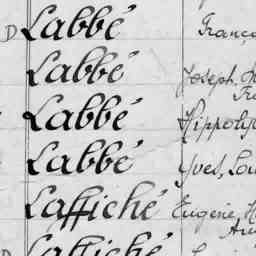 D Labbé França
Labbé Joseph
Labbé Hippoly
Labbé Yves, Lou
Laffiché Eugène, H
D Laffiché